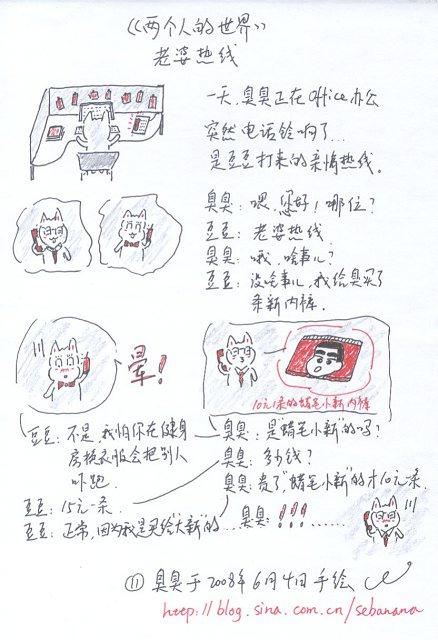 《两个人的世界》
老婆热线
一天,臭臭正在office办公
突然电话铃响了...
是豆豆打来的亲情热线。
臭臭:喂,您好!哪位?
豆豆:老婆热线
臭臭:哦,啥事儿?
豆豆:没啥事儿,我给臭买了
条新内裤.
晕!
10元1条的蜡笔小新内裤
臭臭:是"蜡笔小新"的吗?
豆豆:不是,我怕你在健身
房换衣服会把别人
吓跑.
臭臭:多少钱?
豆豆:15元一条.
臭臭:贵了"蜡笔小新"的才10元1条.
豆豆:正常,因为我是买给"大新"的...
臭臭:!!!......
⑪ 臭臭于2008年6月4日手绘
http://blog.sina.com.cn/sebanana